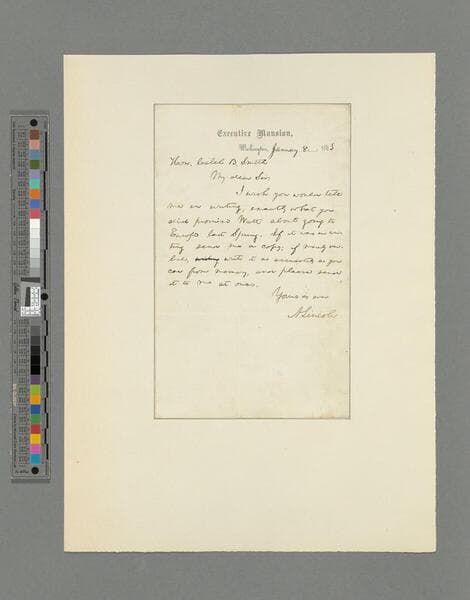 Executive Mansion,
Washington, January 8, 1863
Hon. Caleb B. Smith
My dear Sir,
I wish you would tell
me in writing, exactly what you
did promise Watt about going to
Europe last Spring. If it was in wri-
ting send me a copy; if merely ver-
bal, write it as accurately as you
can from memory, and please send
it to me at once.
Yours as ever
A. Lincoln